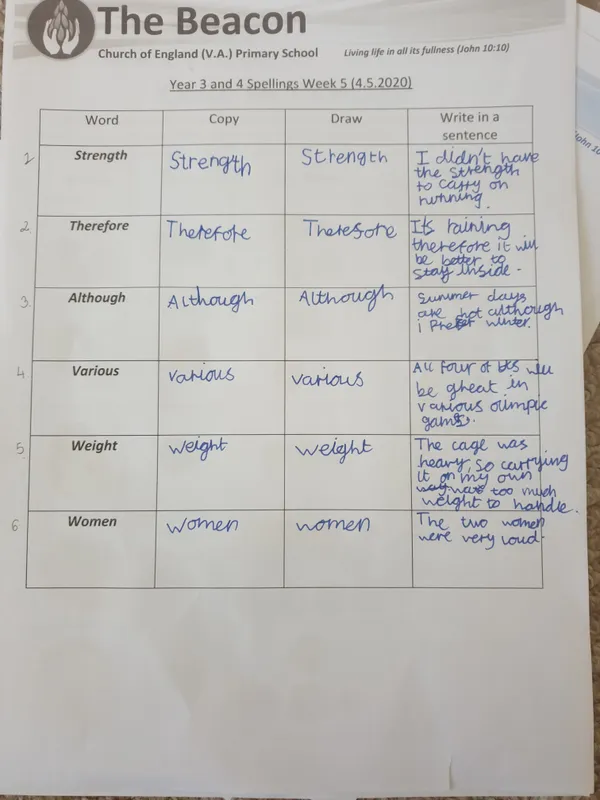 The Beacon
Church of England (V.A.) Primary School
Living life in all its fullness (John 10:10)
John 10
Year 3 and 4 Spellings Week 5 (4.5.2020)
Word Copy Draw Write in a
sentence
1 Strength Strength Strength I didn't have
the strength
to carry on
running.
2. Therefore Therefore Therefore Its raining
therefore it will
be better to
stay inside.
3. Although Although Although Summer days
are hot although
i Prefer winter.
4 Various various various All four of us will
be great in
various olimpic
games.
5. Weight weight weight The cage was
heavy, so carrying
it on my own
was too much
weight to handle.
6 Women women women The two women
were very loud.